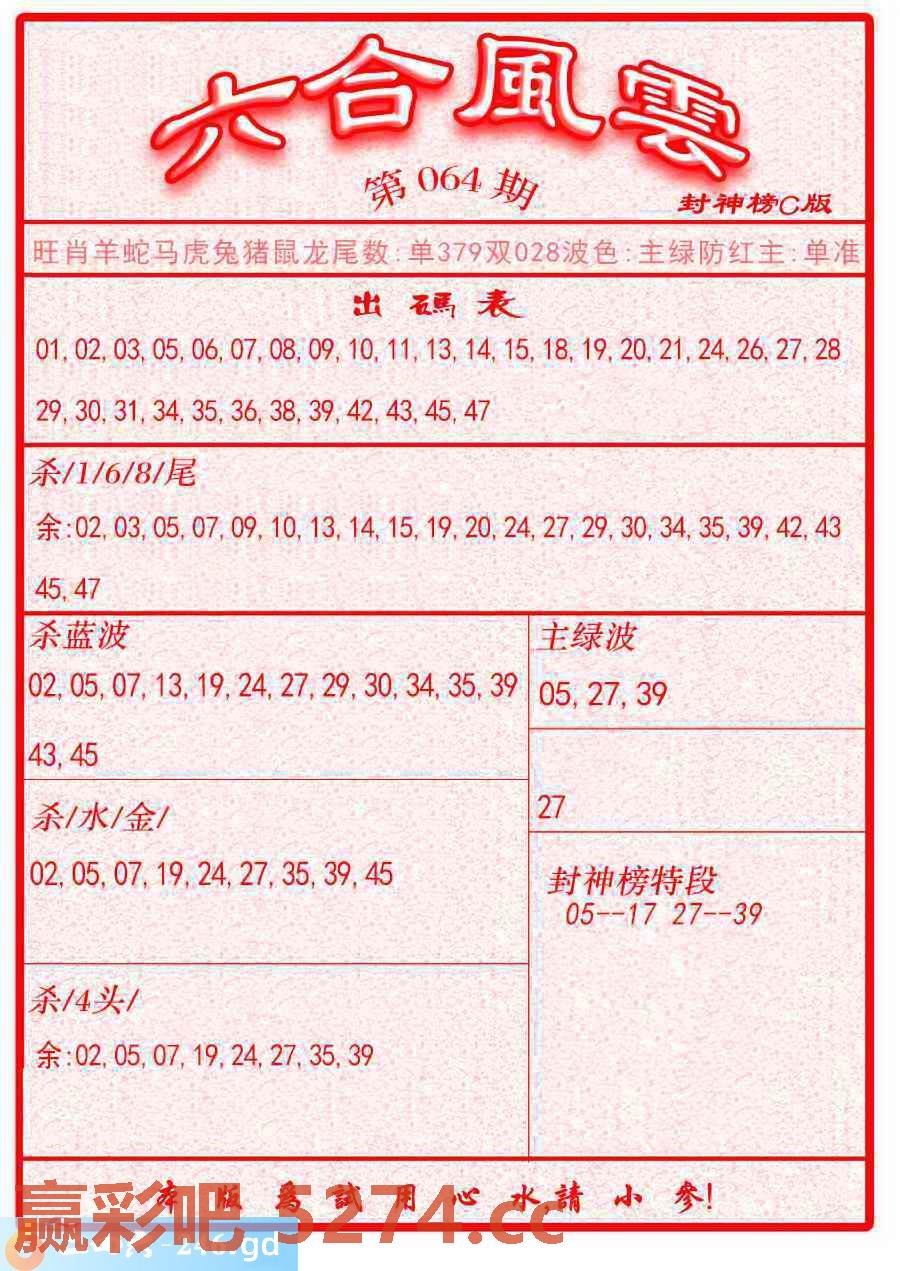 六合風雲
第 064 期
封神榜C版
旺肖羊蛇马虎兔猪鼠龙尾数:单379双028波色:主绿防红主:单准
出碼表
01,02,03,05,06,07,08,09,10,11,13,14,15,18,19,20,21,24,26,27,28
29,30,31,34,35,36,38,39,42,43,45,47
杀/1/6/8/尾
余:02,03,05,07,09,10,13,14,15,19,20,24,27,29,30,34,35,39,42,43
45,47
杀蓝波
02,05,07,13,19,24,27,29,30,34,35,39
43,45
主绿波
05,27,39
27
杀/水/金/
02,05,07,19,24,27,35,39,45
封神榜特段
05--17 27--39
杀/4头/
余:02,05,07,19,24,27,35,39
本版爲試用心水請小參!
赢彩吧 5274.cc
-246.gd